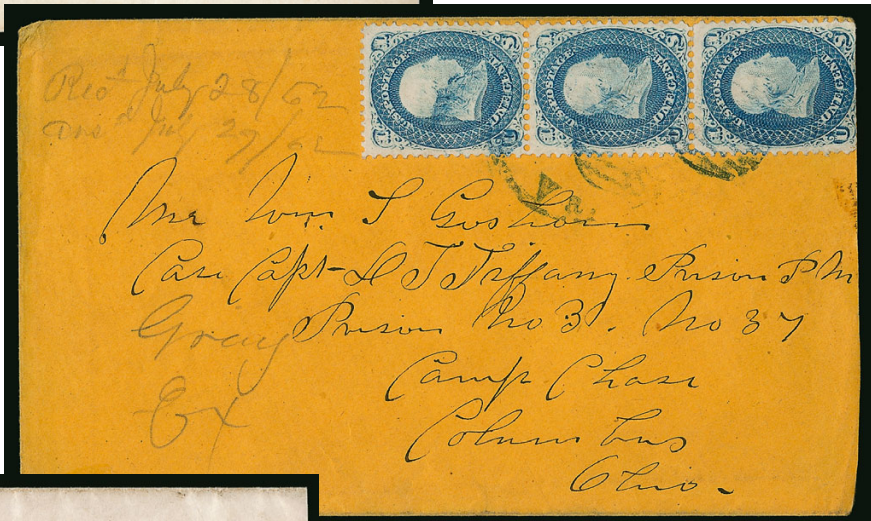 Recd July 28/62
July 27/62
U.S. POSTAGE ONE CENT
U.S. POSTAGE ONE CENT
U.S. POSTAGE ONE CENT
Mr Wm. S Goshorn
Care Capt L T Tiffany Prison P M
Gray
Prison No 3. No 37
Ex
Camp Chase
Columbus
Ohio.